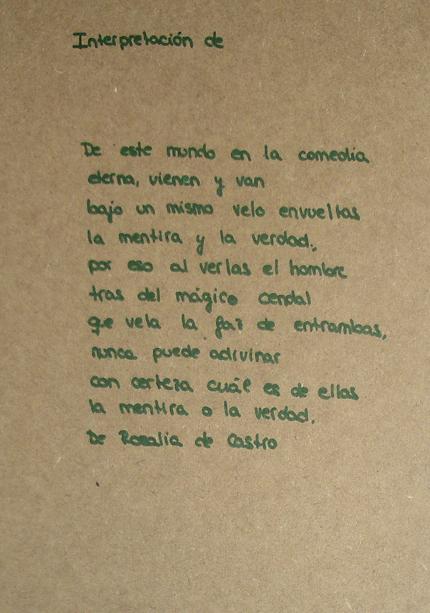 Interpretación de
De este mundo en la comedia
eterna, vienen y van
bajo un mismo velo envueltas
la mentira y la verdad.,
por eso al verlas el hombre
tras del mágico cendal
que vela la faz de entrambas,
nunca puede adivinar
con certeza cuál es de ellas
la mentira o la verdad.
De Rosalia de Castro